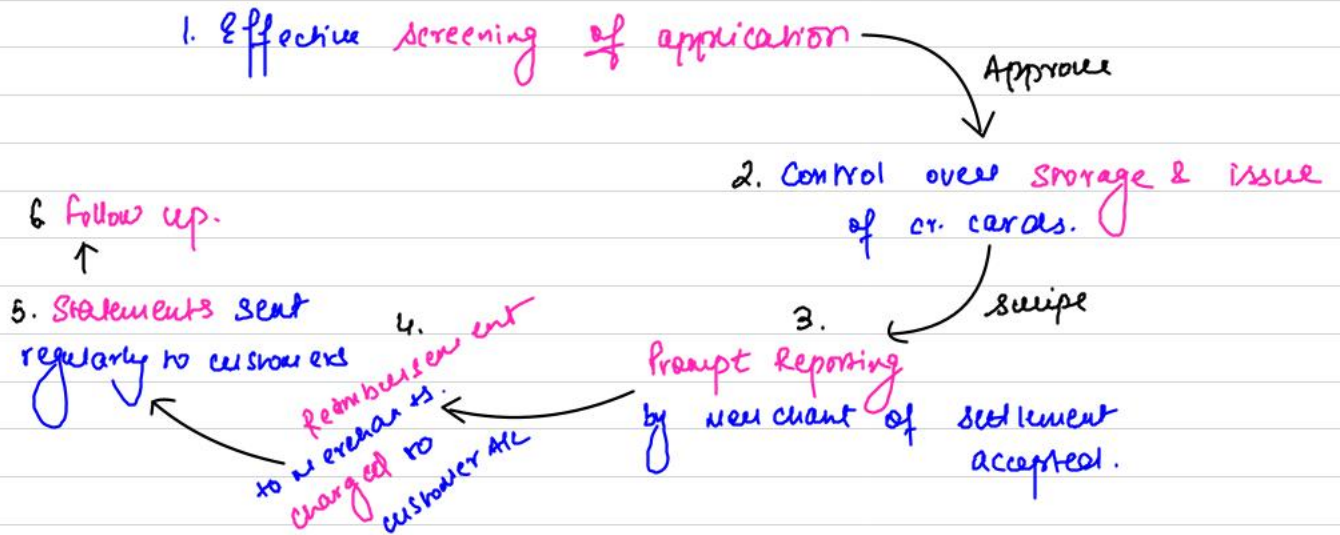 1. Effective screening of application
Approve
2. Control over storage & issue
of cr. cards.
swipe
3.
Prompt Reporting
by merchant of settlement
accepted.
4.
Reimbursement
to merchants.
charged to
customer A/c
5. Statements sent
regularly to customers
6 follow up.